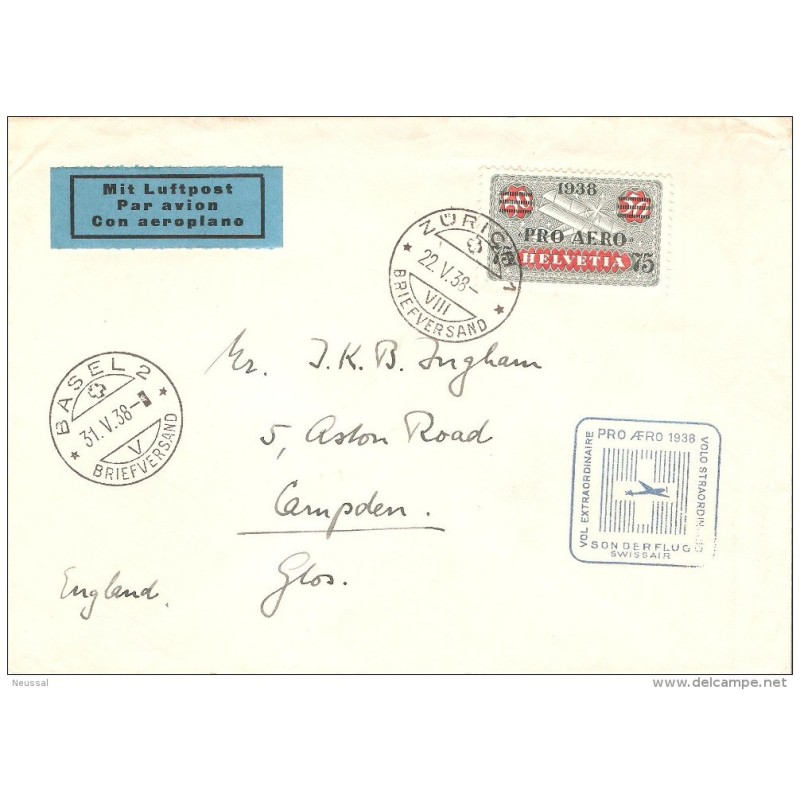 Mit Luftpost
Par avion
Con aeroplano
1938
PRO AERO
75 HELVETIA 75
ZÜRICH 1
22.V.38-
VIII
BRIEFVERSAND
BASEL 2
31.V.38-
V
BRIEFVERSAND
Mr. J.K.B. Ingham
5, Aston Road
Campden.
Glos.
England.
PRO ÆRO 1938
VOL EXTRAORDINAIRE
VOLO STRAORDIN
SONDERFLUG
SWISSAIR
Neussal
www.delcampe.net